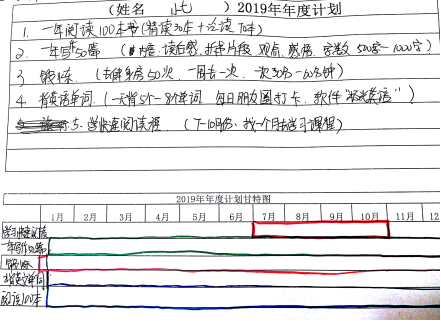 (姓名 ) 2019年年度计划
1. 一年阅读100本书(精读30本+泛读70本)
2. 一年写50篇 ( 读后感, 观点, 感悟, 字数 500字-1000字)
3 锻炼 (去健身房50次, 一周去一次, 一次30分-60分钟)
4. 背英语单词. (一天背5个-8个单词 每日朋友圈打卡, 软件" 英语")
5. 学快速阅读课程 (7-10月份, 找一个 学习课程)
2019年年度计划甘特图
1月 2月 3月 4月 5月 6月 7月 8月 9月 10月 11月 12
学习快速阅读
一年写作50篇
锻炼
背英文单词
阅读100本